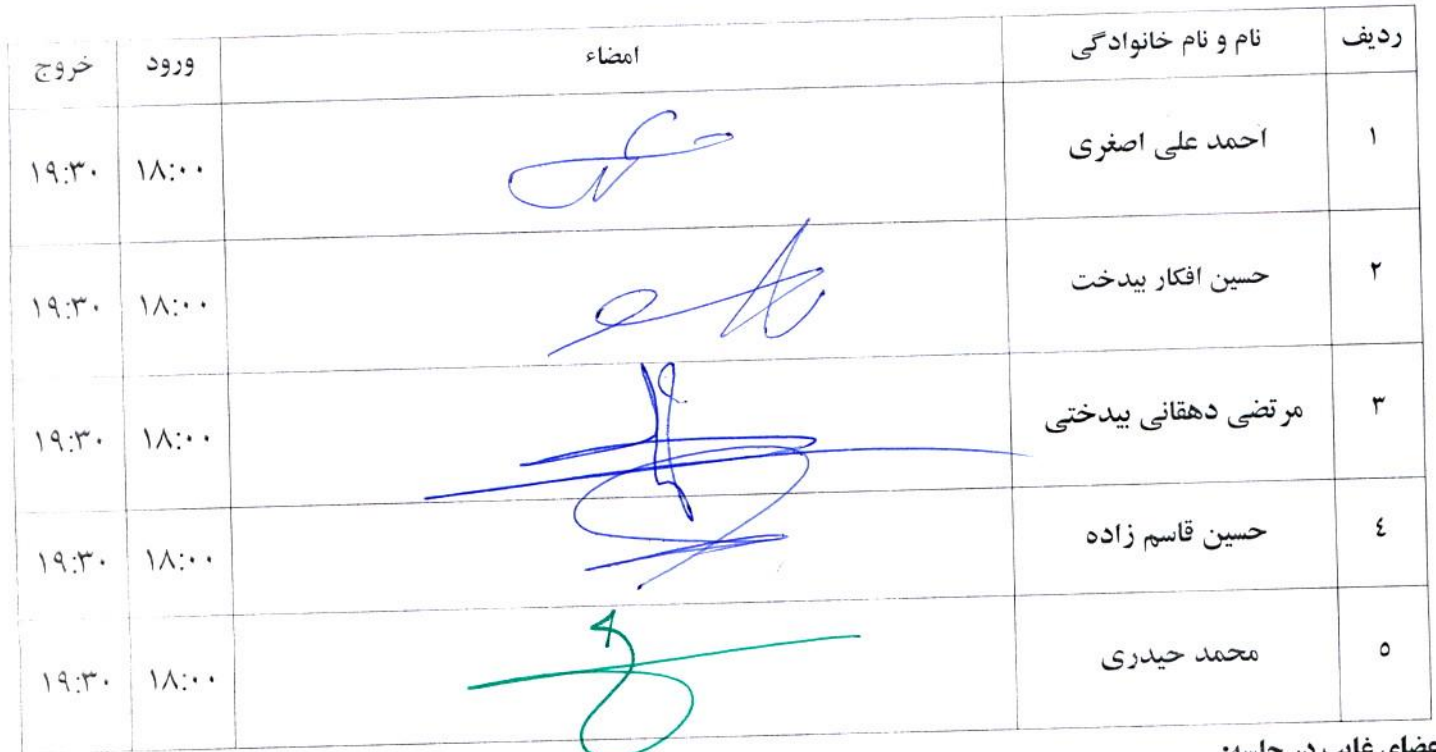 ردیف نام و نام خانوادگی امضاء ورود خروج
۱ احمد علی اصغری ۱۸:۰۰ ۱۹:۳۰
۲ حسین افکار بیدخت ۱۸:۰۰ ۱۹:۳۰
۳ مرتضی دهقانی بیدختی ۱۸:۰۰ ۱۹:۳۰
٤ حسین قاسم زاده ۱۸:۰۰ ۱۹:۳۰
٥ محمد حیدری ۱۸:۰۰ ۱۹:۳۰
اعضای غایب در جلسه: